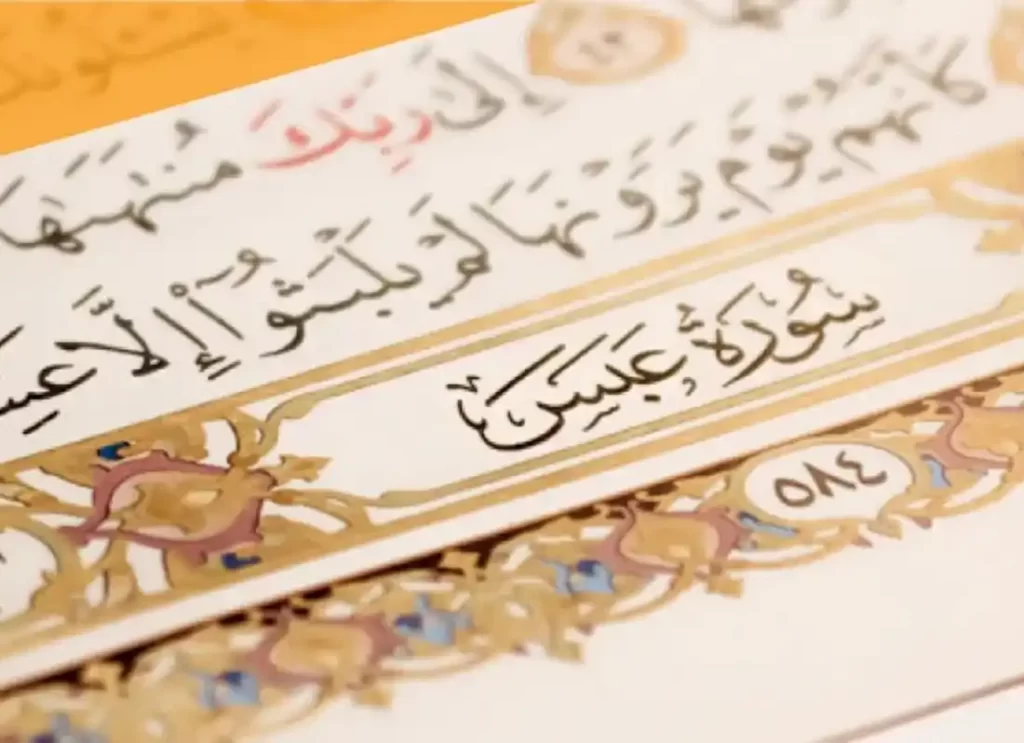 ٤٣ إِلَىٰ رَبِّكَ مُنتَهَىٰهَا
كَأَنَّهُمْ يَوْمَ يَرَوْنَهَا لَمْ يَلْبَثُوٓا۟ إِلَّا
سُورَةُ عَبَسَ
٥٨٤